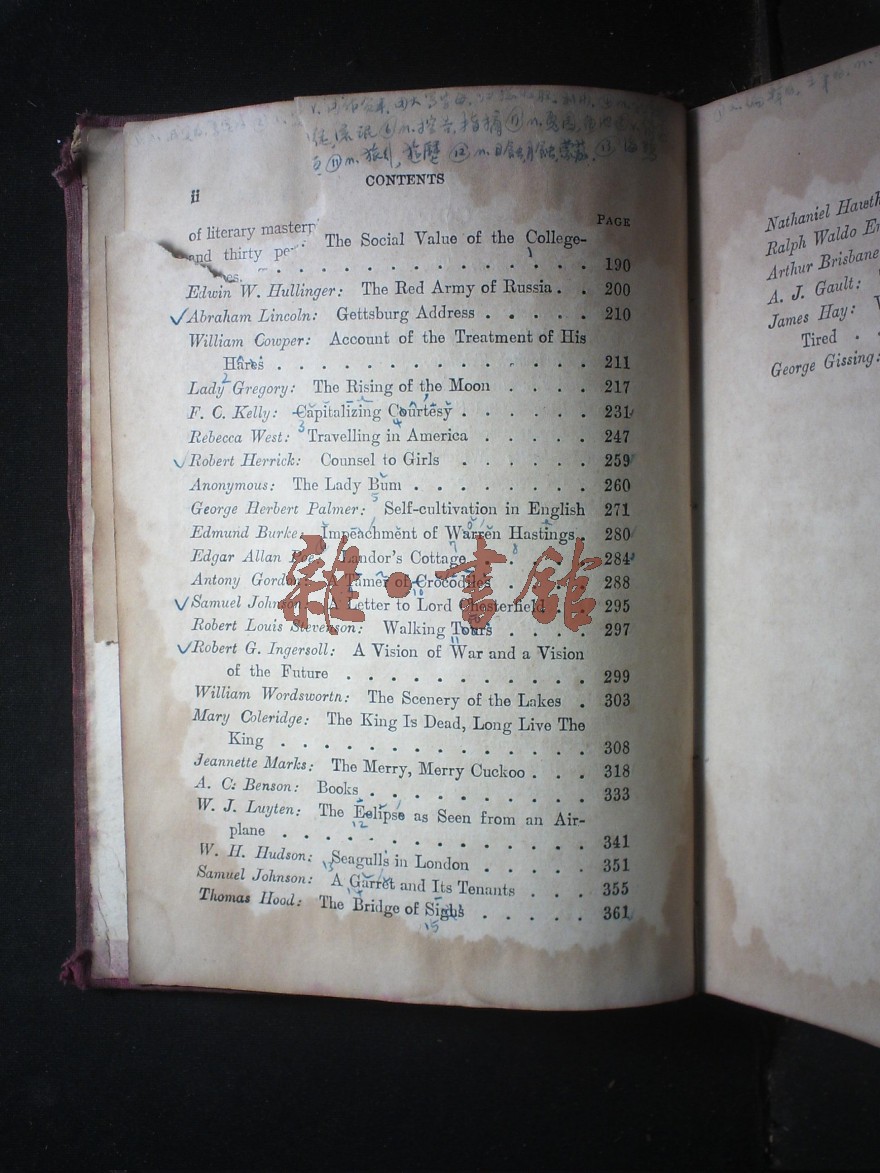 CONTENTS
ii
PAGE
of literary masterp
and thirty pe
The Social Value of the College-
es. . . . . . . . . . . . . . 190
Edwin W. Hullinger: The Red Army of Russia . . 200
Abraham Lincoln: Gettsburg Address . . . . . 210
William Cowper: Account of the Treatment of His
Hares . . . . . . . . . . . . . 211
Lady Gregory: The Rising of the Moon . . . . 217
F. C. Kelly: Capitalizing Courtesy . . . . . . 231
Rebecca West: Travelling in America . . . . . 247
Robert Herrick: Counsel to Girls . . . . . . 259
Anonymous: The Lady Bum . . . . . . . . 260
George Herbert Palmer: Self-cultivation in English 271
Edmund Burke: Impeachment of Warren Hastings. . 280
Edgar Allan Poe: Landor's Cottage . . . . . 284
Antony Gordon: A Tamer of Crocodiles . . . . 288
Samuel Johnson: A Letter to Lord Chesterfield . . 295
Robert Louis Stevenson: Walking Tours . . . . 297
Robert G. Ingersoll: A Vision of War and a Vision
of the Future . . . . . . . . . . . 299
William Wordsworth: The Scenery of the Lakes . 303
Mary Coleridge: The King Is Dead, Long Live The
King . . . . . . . . . . . . . 308
Jeannette Marks: The Merry, Merry Cuckoo . . . 318
A. C. Benson: Books . . . . . . . . . . 333
W. J. Luyten: The Eclipse as Seen from an Air-
plane . . . . . . . . . . . . . 341
W. H. Hudson: Seagulls in London . . . . . 351
Samuel Johnson: A Garret and Its Tenants . . . 355
Thomas Hood: The Bridge of Sighs . . . . . 361
雜·書館
Nathaniel Hawth
Ralph Waldo Em
Arthur Brisbane
A. J. Gault:
James Hay:
Tired .
George Gissing: